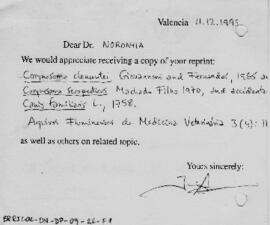 Valencia 11.12.1995
Dear Dr. NORONHA
We would appreciate receiving a copy of your reprint:
Corynosoma clementi Giovannoni and Fernandes, 1965 a
Machado Filho 1970, and accidental
Canis familiaris L., 1758.
Arquivos Fluminenses de Medicina Veterinária 3(4): 11
as well as others on related topic.
Yours sincerely: